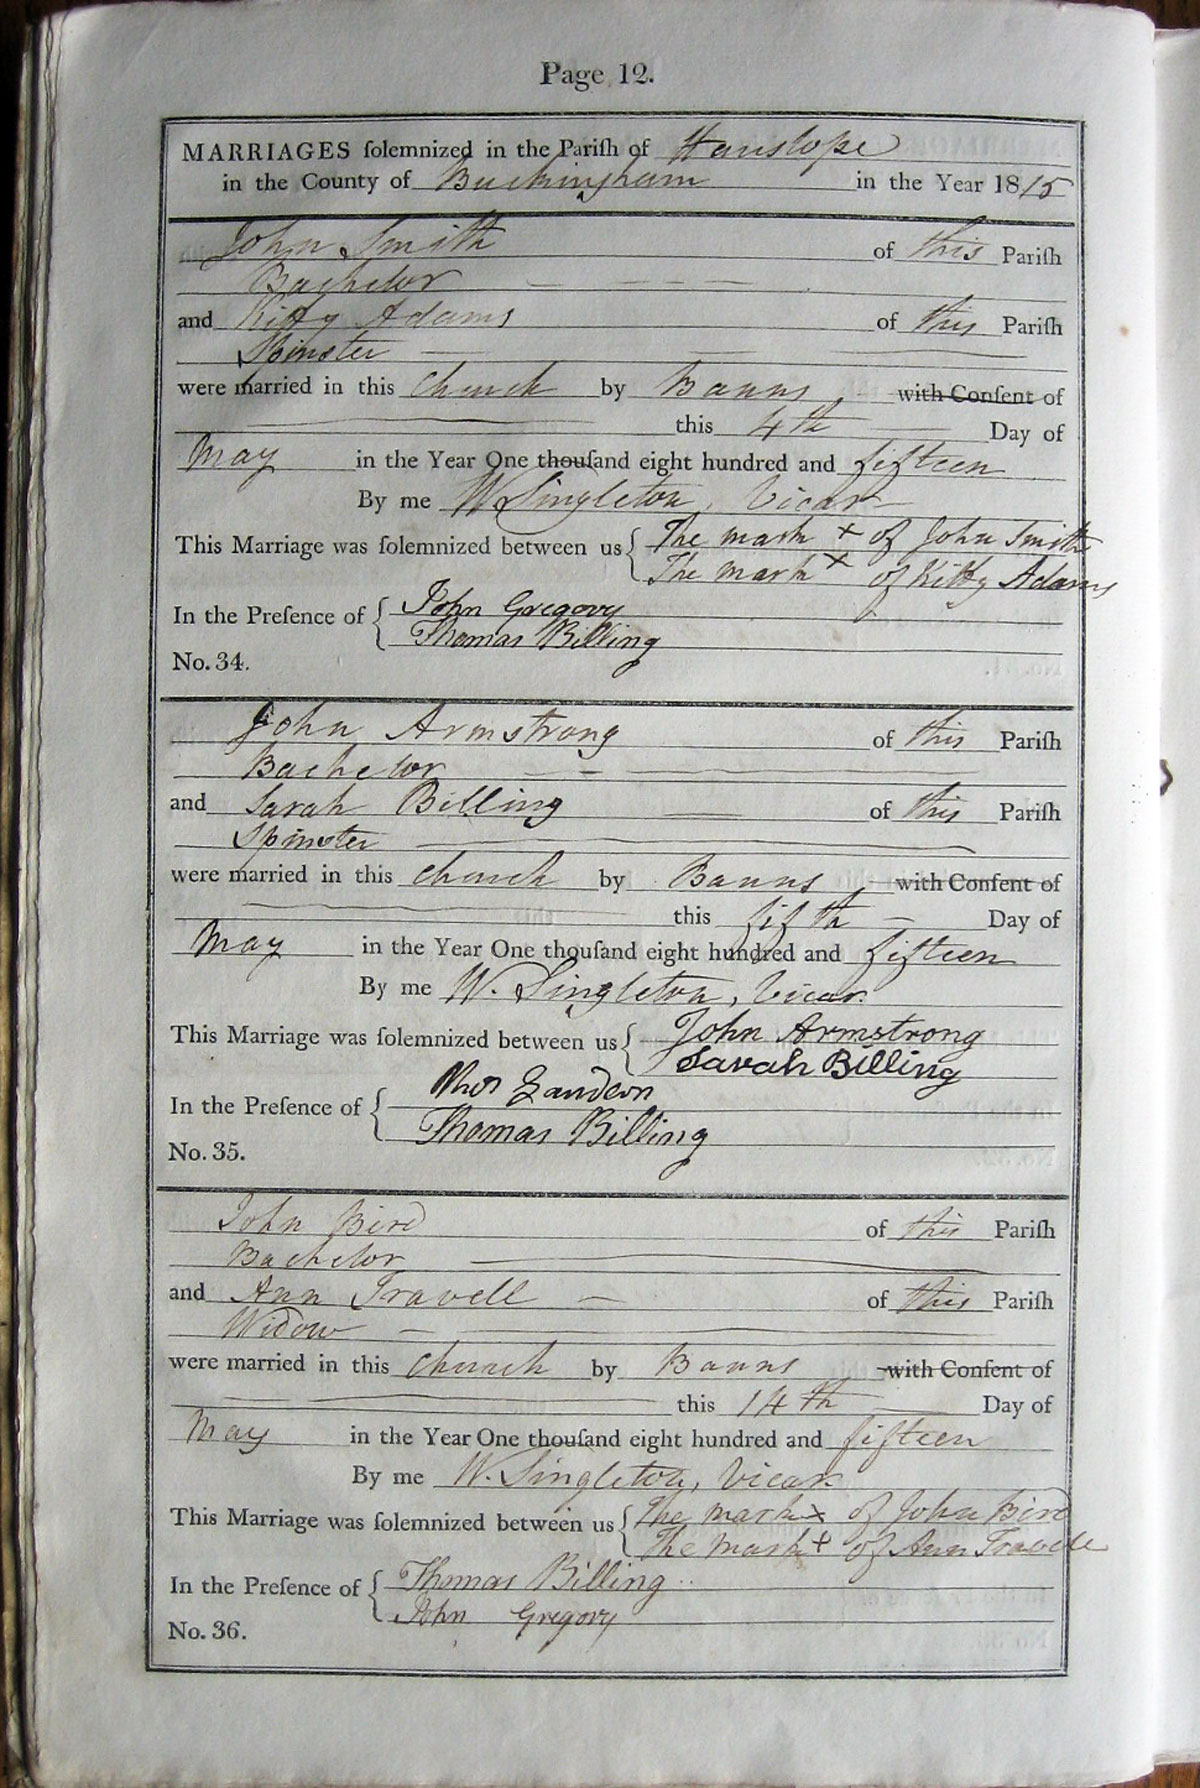 Page 12.
MARRIAGES ſolemnized in the Pariſh of Hanslope
in the County of Buckingham in the Year 1815
John Smith of this Pariſh
Bachelor
and Kitty Adams of this Pariſh
Spinster
were married in this Church by Banns with Conſent of
this 4th Day of
May in the Year One thouſand eight hundred and fifteen
By me W. Singleton, Vicar
This Marriage was ſolemnized between us The mark X of John Smith
The mark X of Kitty Adams
In the Preſence of John Gregory
Thomas Billing
No. 34.
John Armstrong of this Pariſh
Bachelor
and Sarah Billing of this Pariſh
Spinster
were married in this Church by Banns with Conſent of
this fifth Day of
May in the Year One thouſand eight hundred and fifteen
By me W. Singleton, Vicar.
This Marriage was ſolemnized between us John Armstrong
Sarah Billing
In the Preſence of
Thomas Billing
No. 35.
John Bird of this Pariſh
Bachelor
and Ann Travell of this Pariſh
Widow
were married in this Church by Banns with Conſent of
this 14th Day of
May in the Year One thouſand eight hundred and fifteen
By me W. Singleton, Vicar.
This Marriage was ſolemnized between us The mark X of John Bird
The mark + of Ann Travell
In the Preſence of Thomas Billing
John Gregory
No. 36.